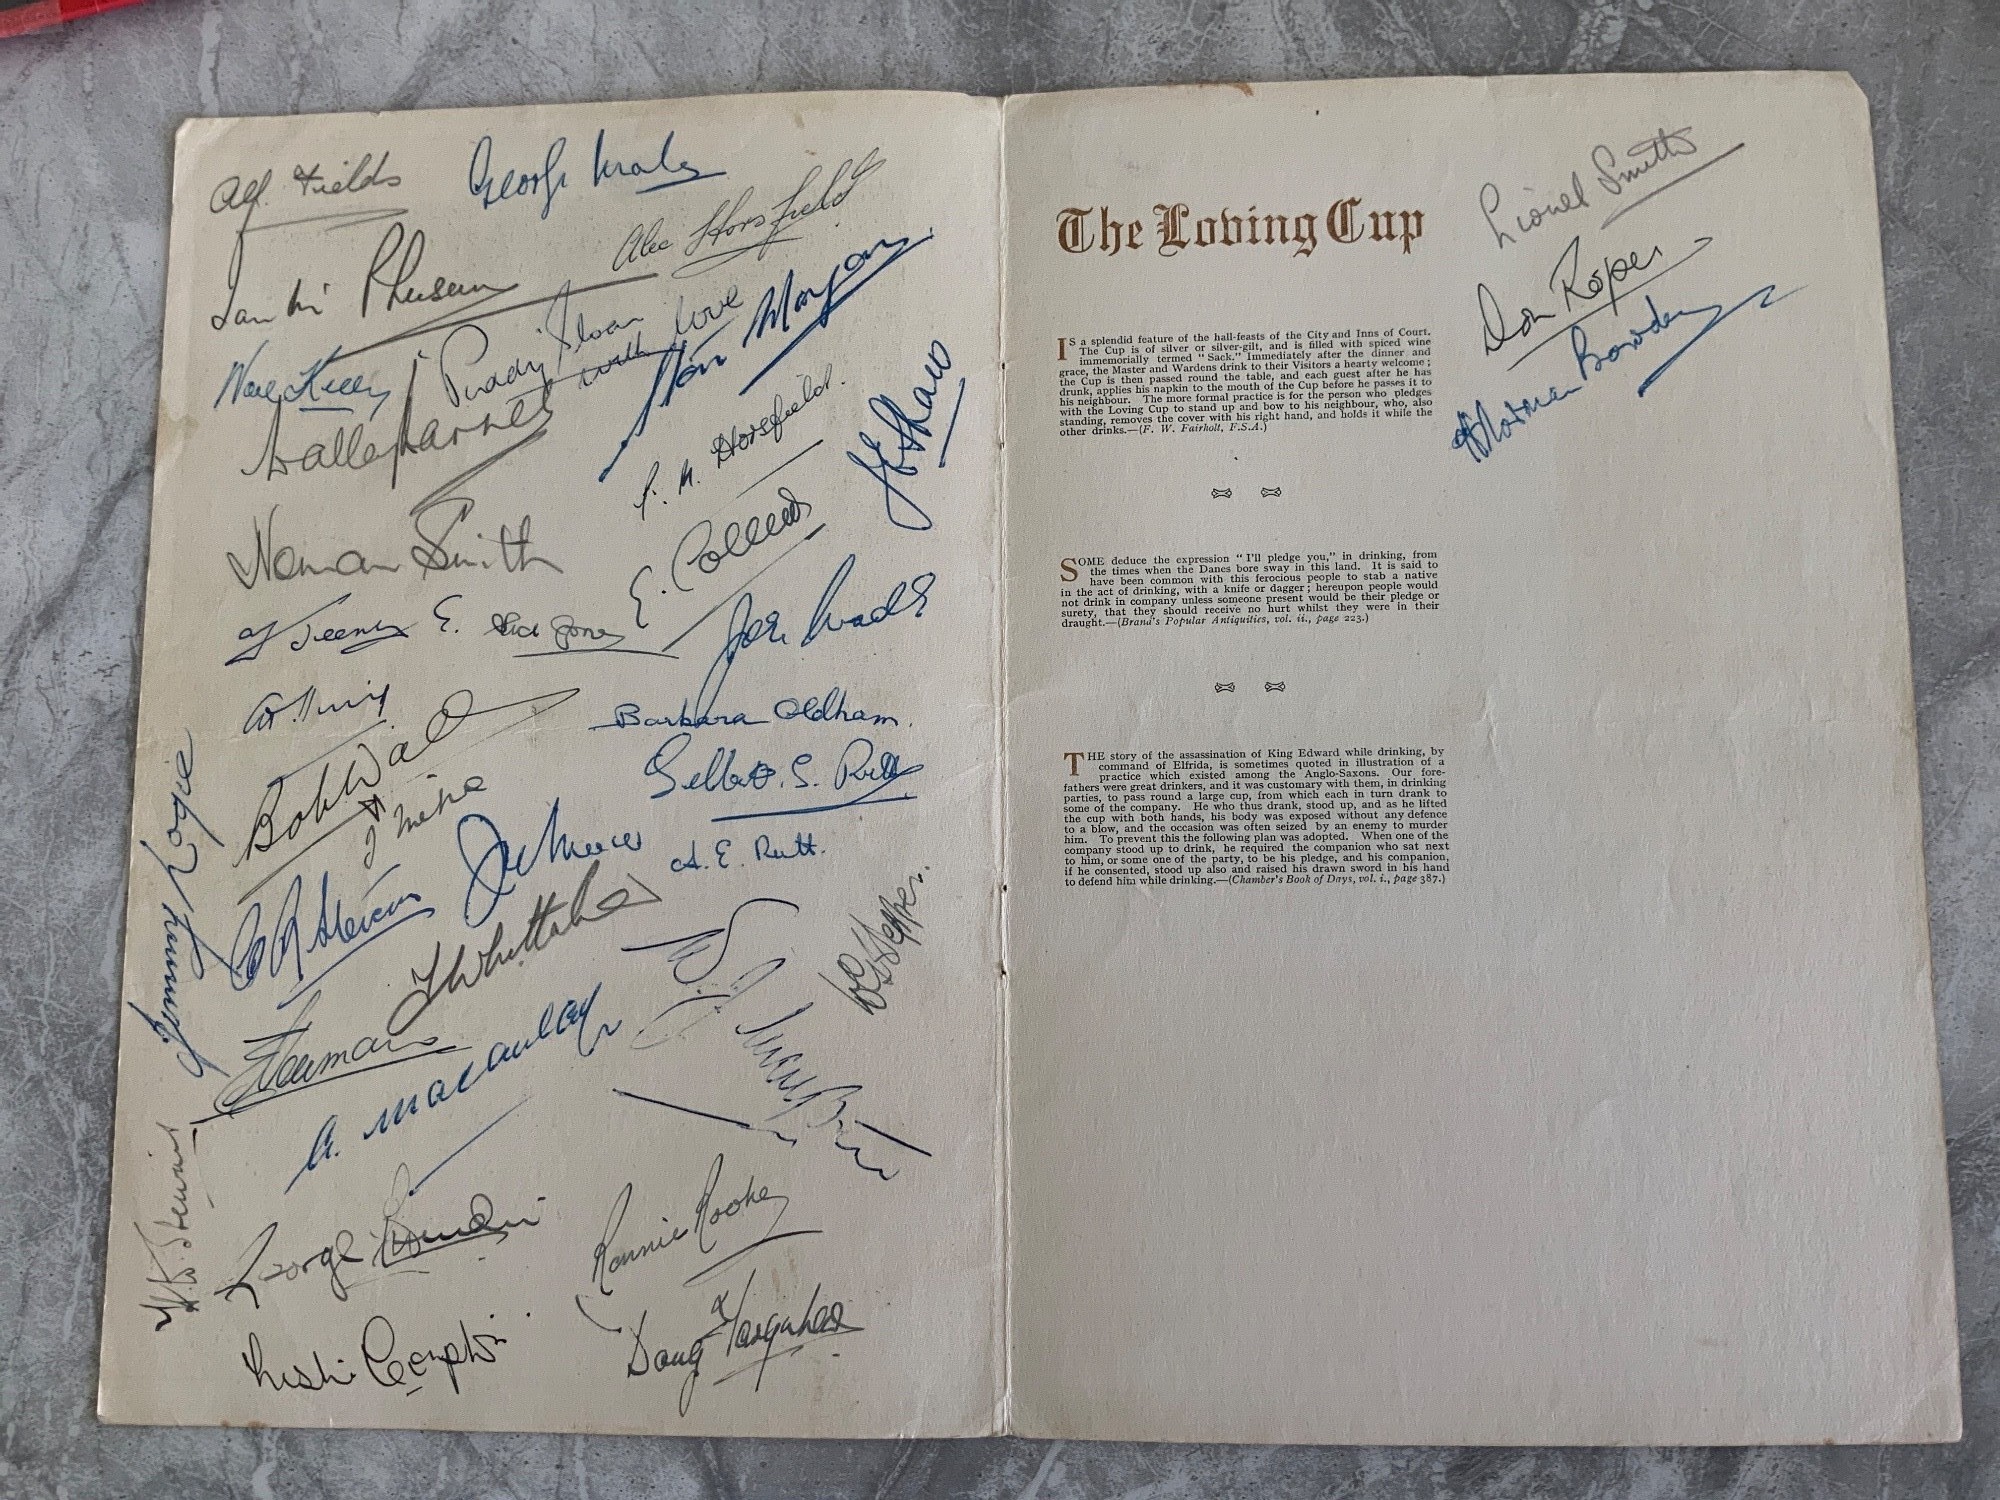 Alf. Fields
George Male
Alec Horsfield
Ian Mc Pherson
Noel Kelly
Paddy Sloan
with love
Stan Morgan
Walley Barnes
P. M. Horsfield.
J E Shaw
Norman Smith
E. Collins
E. Alice Jones
Joe Wade
Barbara Oldham.
Bob Wall
Gilbert. S. Rutt
J Milne
A. E. Rutt.
Jimmy Logie
T Whittaker
A. Macaulay
Ronnie Rooke
Leslie Compton
Doug Farquhar
The Loving Cup
Lionel Smith
Don Roper
Norman Bowden
IS a splendid feature of the hall-feasts of the City and Inns of Court.
The Cup is of silver or silver-gilt, and is filled with spiced wine
immemorially termed “ Sack.” Immediately after the dinner and
grace, the Master and Wardens drink to their Visitors a hearty welcome ;
the Cup is then passed round the table, and each guest after he has
drunk, applies his napkin to the mouth of the Cup before he passes it to
his neighbour. The more formal practice is for the person who pledges
with the Loving Cup to stand up and bow to his neighbour, who, also
standing, removes the cover with his right hand, and holds it while the
other drinks.—(F. W. Fairholt, F.S.A.)
SOME deduce the expression “ I'll pledge you,” in drinking, from
the times when the Danes bore sway in this land. It is said to
have been common with this ferocious people to stab a native
in the act of drinking, with a knife or dagger ; hereupon people would
not drink in company unless someone present would be their pledge or
surety, that they should receive no hurt whilst they were in their
draught.—(Brand's Popular Antiquities, vol. ii., page 223.)
THE story of the assassination of King Edward while drinking, by
command of Elfrida, is sometimes quoted in illustration of a
practice which existed among the Anglo-Saxons. Our fore-
fathers were great drinkers, and it was customary with them, in drinking
parties, to pass round a large cup, from which each in turn drank to
some of the company. He who thus drank, stood up, and as he lifted
the cup with both hands, his body was exposed without any defence
to a blow, and the occasion was often seized by an enemy to murder
him. To prevent this the following plan was adopted. When one of the
company stood up to drink, he required the companion who sat next
to him, or some one of the party, to be his pledge, and his companion,
if he consented, stood up also and raised his drawn sword in his hand
to defend him while drinking.—(Chamber's Book of Days, vol. i., page 387.)